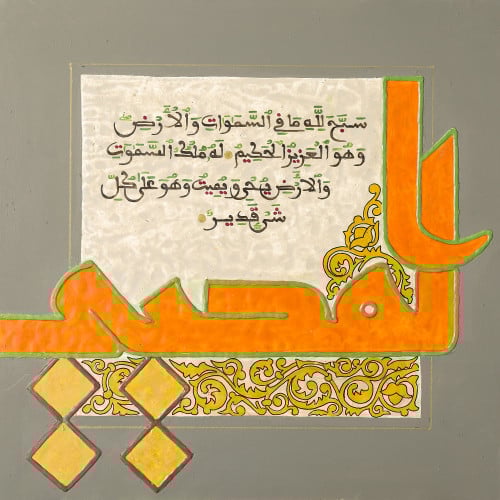 سَبَّحَ لِلَّهِ مَا فِي السَّمَوَاتِ وَالْأَرْضِ
وَهُوَ الْعَزِيزُ الْحَكِيمُ لَهُ مُلْكُ السَّمَوَاتِ
وَالْأَرْضِ يُحْيِي وَيُمِيتُ وَهُوَ عَلَى كُلِّ
شَيْءٍ قَدِيرٌ
المحيي